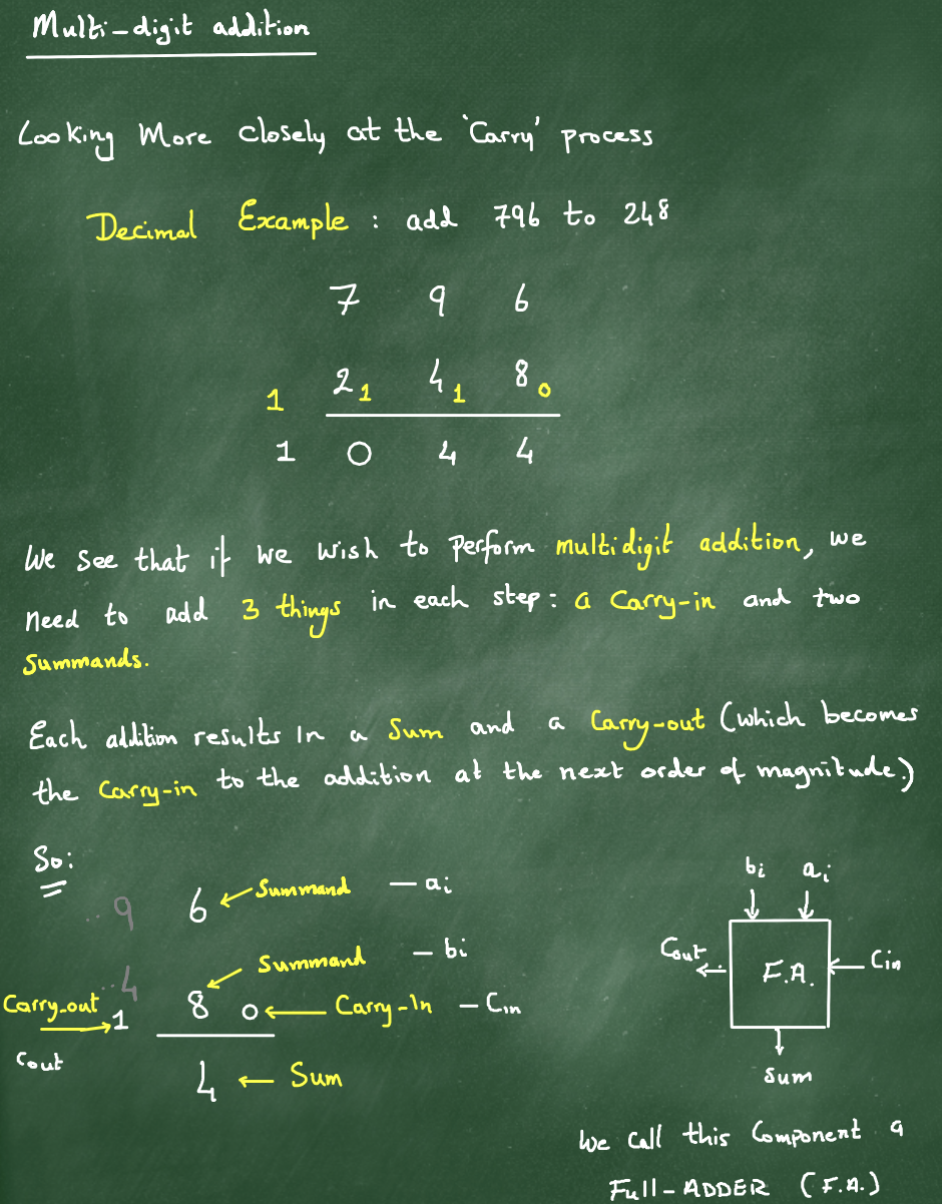 Multi-digit addition
Looking More closely at the 'Carry' process
Decimal Example : add 796 to 248
7 9 6
1 2 1 4 1 8 0
1 0 4 4
We see that if we wish to perform multidigit addition, we
need to add 3 things in each step: a Carry-in and two
Summands.
Each addition results in a Sum and a Carry-out (which becomes
the Carry-in to the addition at the next order of magnitude.)
So:
9 6 ← Summand – ai
4 8 ← Summand – bi
Carry-out → 1 0 ← Carry-In – Cin
Cout
4 ← Sum
bi ai
Cout ← F.A. ← Cin
Sum
We Call this Component a
Full-ADDER (F.A.)